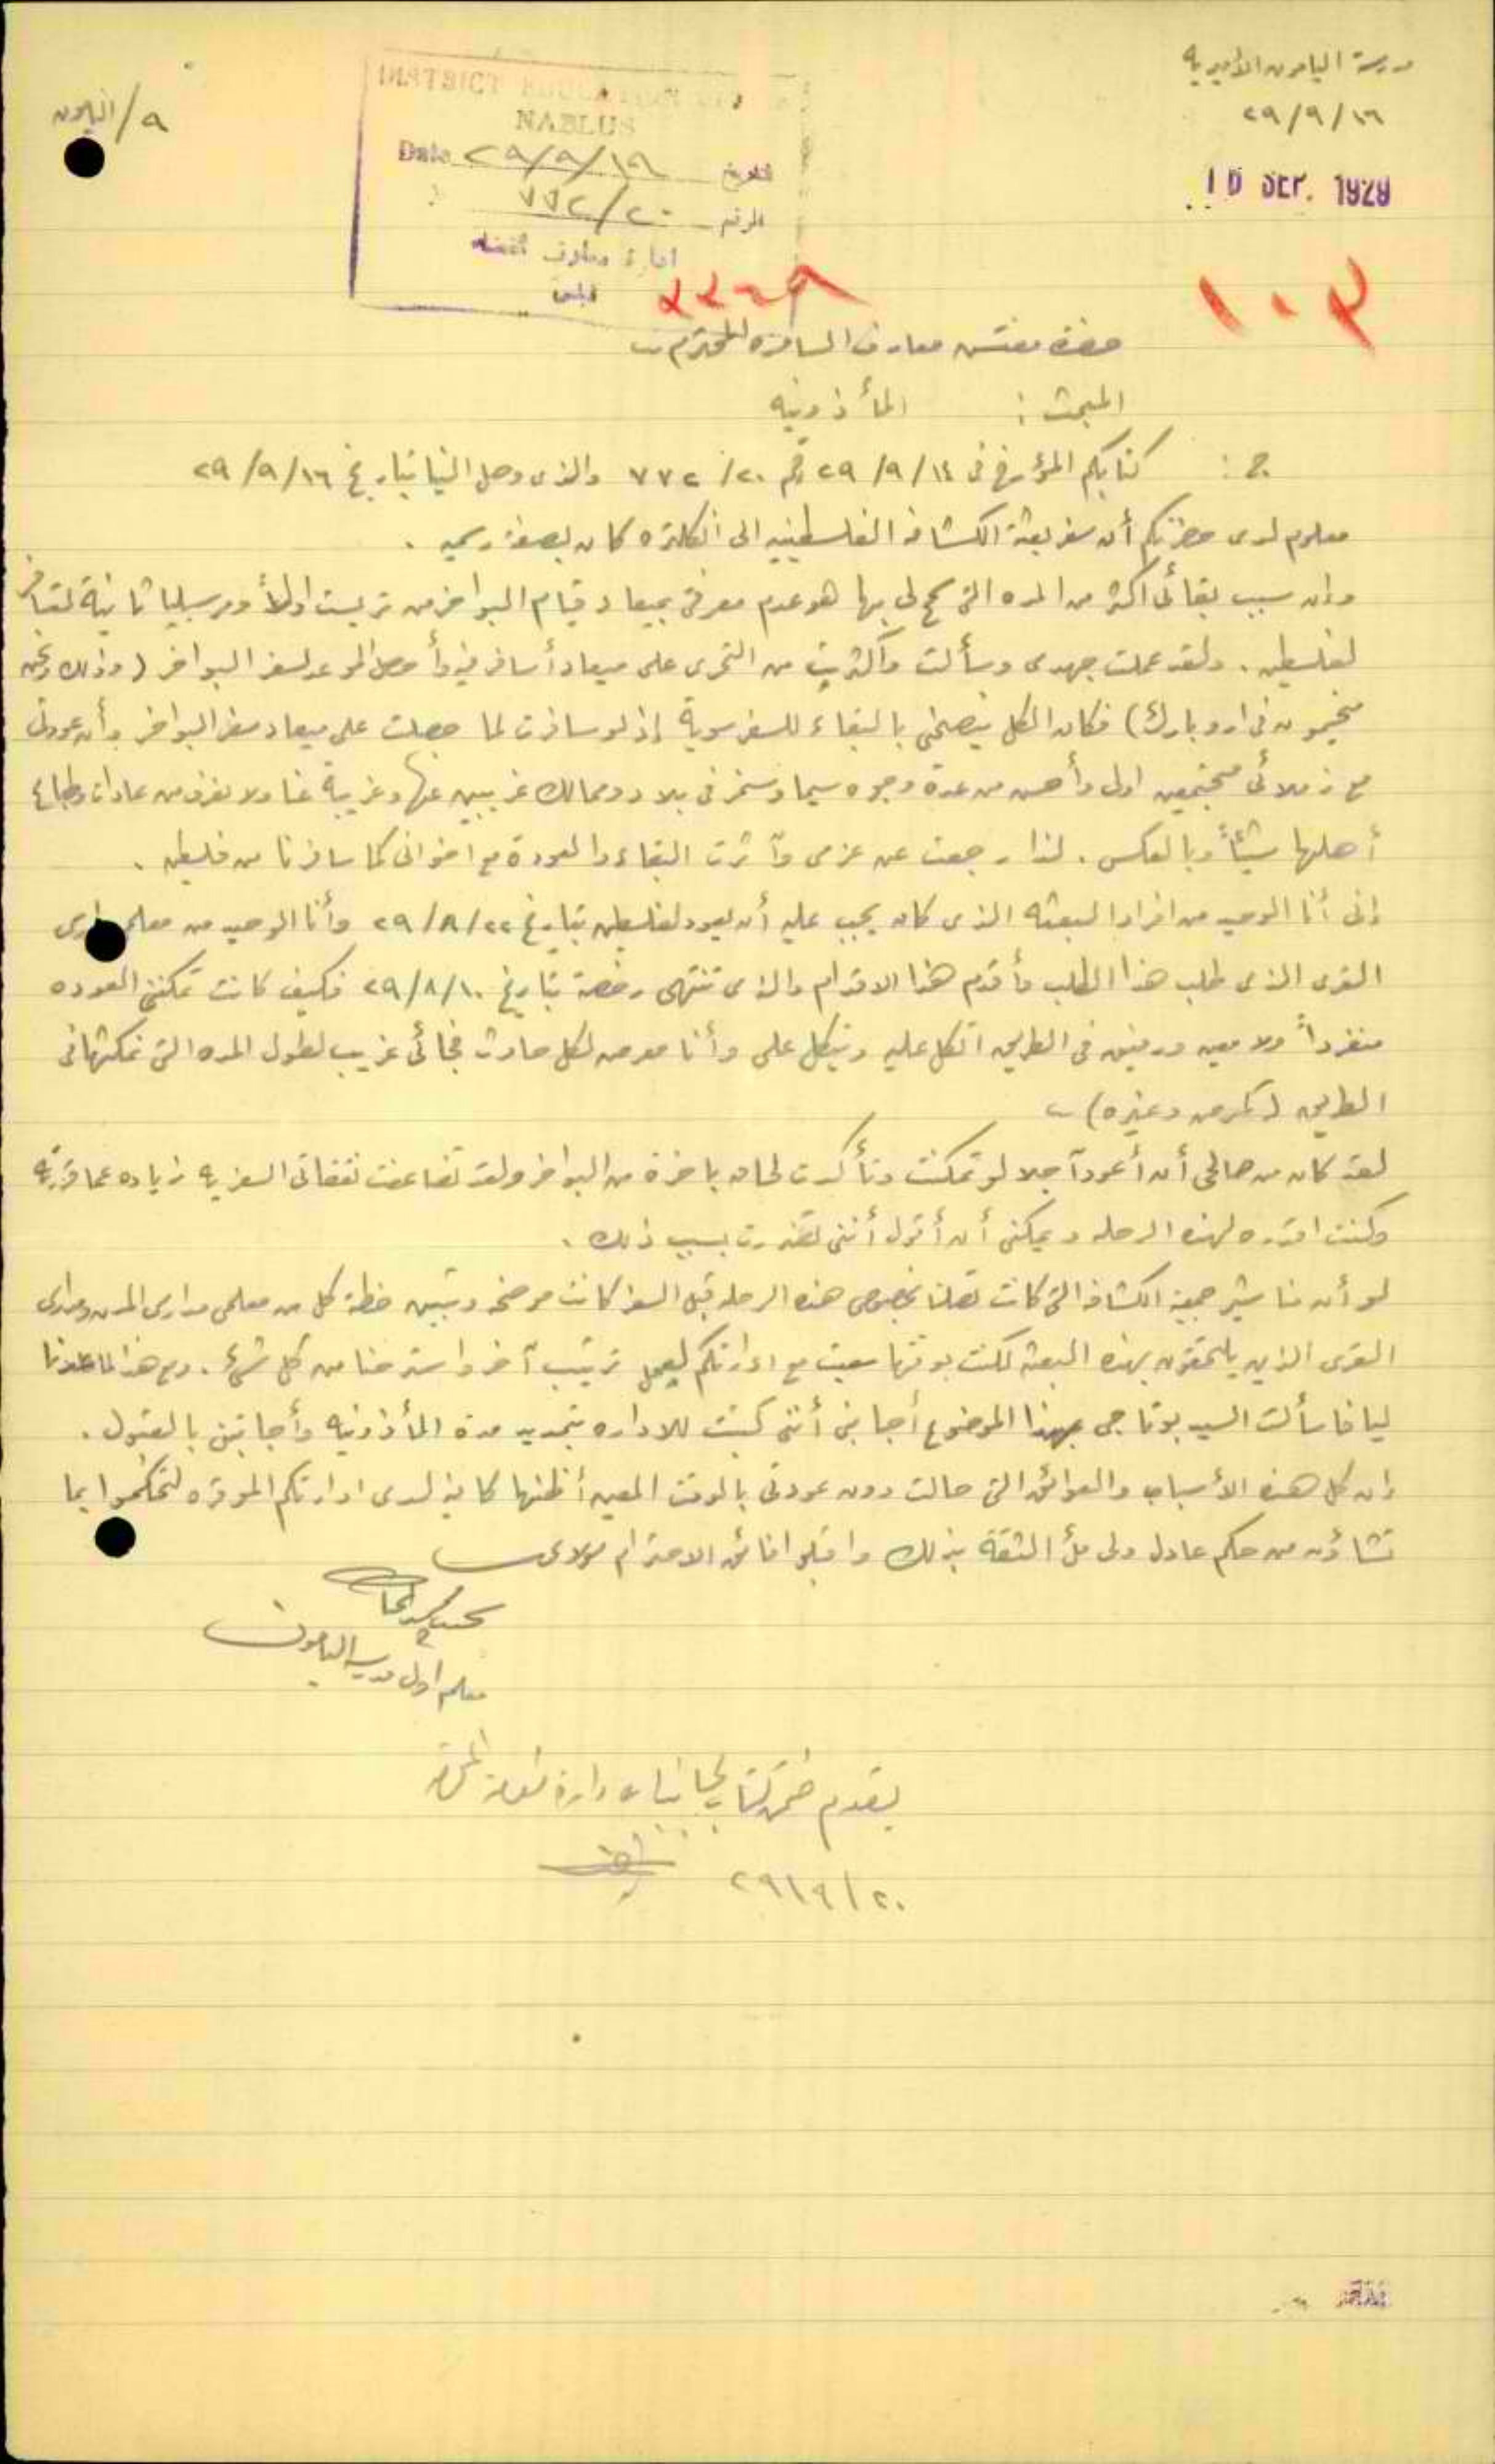 مدرسة اليامون الأميرية
٢٩/٩/١٦
٩/اليامون
DISTRICT EDUCATION
NABLUS
Date ٢٩/٩/١٩ التاريخ
٧٧٢/٢٠ الرقم
ادارة معارف القضاء
نابلس
SEP. 1929
١٠٣
حضرة مفتش معارف السامرة المحترم
المبحث : المأذونيه
ج : كتابكم المؤرخ في ٢٩/٩/١٤ رقم ٧٧٢/٢٠ والذي وصل الينا بتاريخ ٢٩/٩/١٦
معلوم لدى حضرتكم أن سفر بعثة الكشافه الفلسطينيه الى انكلتره كان بصفة رسميه .
وان سبب بقائي اكثر من المده التي سمح لي بها هو عدم معرفتي بميعاد قيام البواخر من تريست اولاً ومرسيليا ثانية
لفلسطين . ولقد عملت جهدي وسألت وأكثرت من التحري على ميعاد أسافر فيه وأصل الموعد لسفر البواخر ( وذلك ونحن
مخيمون في اروبارك ) فكان الكل ينصحني بالبقاء للسفر سوية إذ لو سافرت لما حصلت على ميعاد سفر البواخر وأن عودتي
مع زملائي مجتمعين اولى وأحسن من عدة وجوه سيما وسنمر في بلاد وممالك غريبين عنها وغريبة عنا ولا نعرف من عادات وطباع
أهلها شيئاً وبالعكس . لذا رجعت عن عزمي وآثرت البقاء والعودة مع اخواني كما سافرنا من فلسطين .
اني أنا الوحيد من افراد البعثه الذي كان يجب عليه أن يعود لفلسطين بتاريخ ٢٩/٨/٢٢ وأنا الوحيد من معلمي مدارس
القرى الذي طلب هذا الطلب وأقدم هذا الاقدام والذي تنتهي رخصة بتاريخ ٢٩/٨/١٠ فكيف كانت تمكنني العوده
منفرداً ولا معين ورفيق في الطريق اتكل عليه ويتكل علي وأنا معرض لكل حادث فجائي غريب لطول المده التي نمكثها في
الطريق ( كمرض وغيره )
لقد كان من صالحي أن أعود آجلا لو تمكنت وتأكدت لحاق باخرة من البواخر ولقد تضاعفت نفقاتي السفريه زياده عما قررته
وكنت اقدره لهذه الرحله ويمكنني أن أقول أنني تضررت بسبب ذلك .
لو أن مناشير جمعية الكشافه التي كانت تصلنا بخصوص هذه الرحله قبل السفر كانت موضحه وتبين خطة كل من معلمي مدارس المدن ومدارس
القرى الذين يلتحقون بهذه البعثه لكنت بوقتها سعيت مع ادارتكم لعمل ترتيب آخر واسترحنا من كل شيء . ومع هذا لما عدنا
ليافا سألت السيد بوتاجي بهذا الموضوع أجابني أنني كتبت للاداره بتمديد مدة المأذونيه وأجابتني بالقبول .
ان كل هذه الأسباب والعوائق التي حالت دون عودتي بالوقت المعين أظنها كافية لدى ادارتكم الموقره لتحكموا بما
تشاؤن من حكم عادل ولى ملء الثقة بذلك واقبلوا فائق الاحترام مولاي
معلم اول مدرسة اليامون
يقدم
٢٩/٩/٢٠